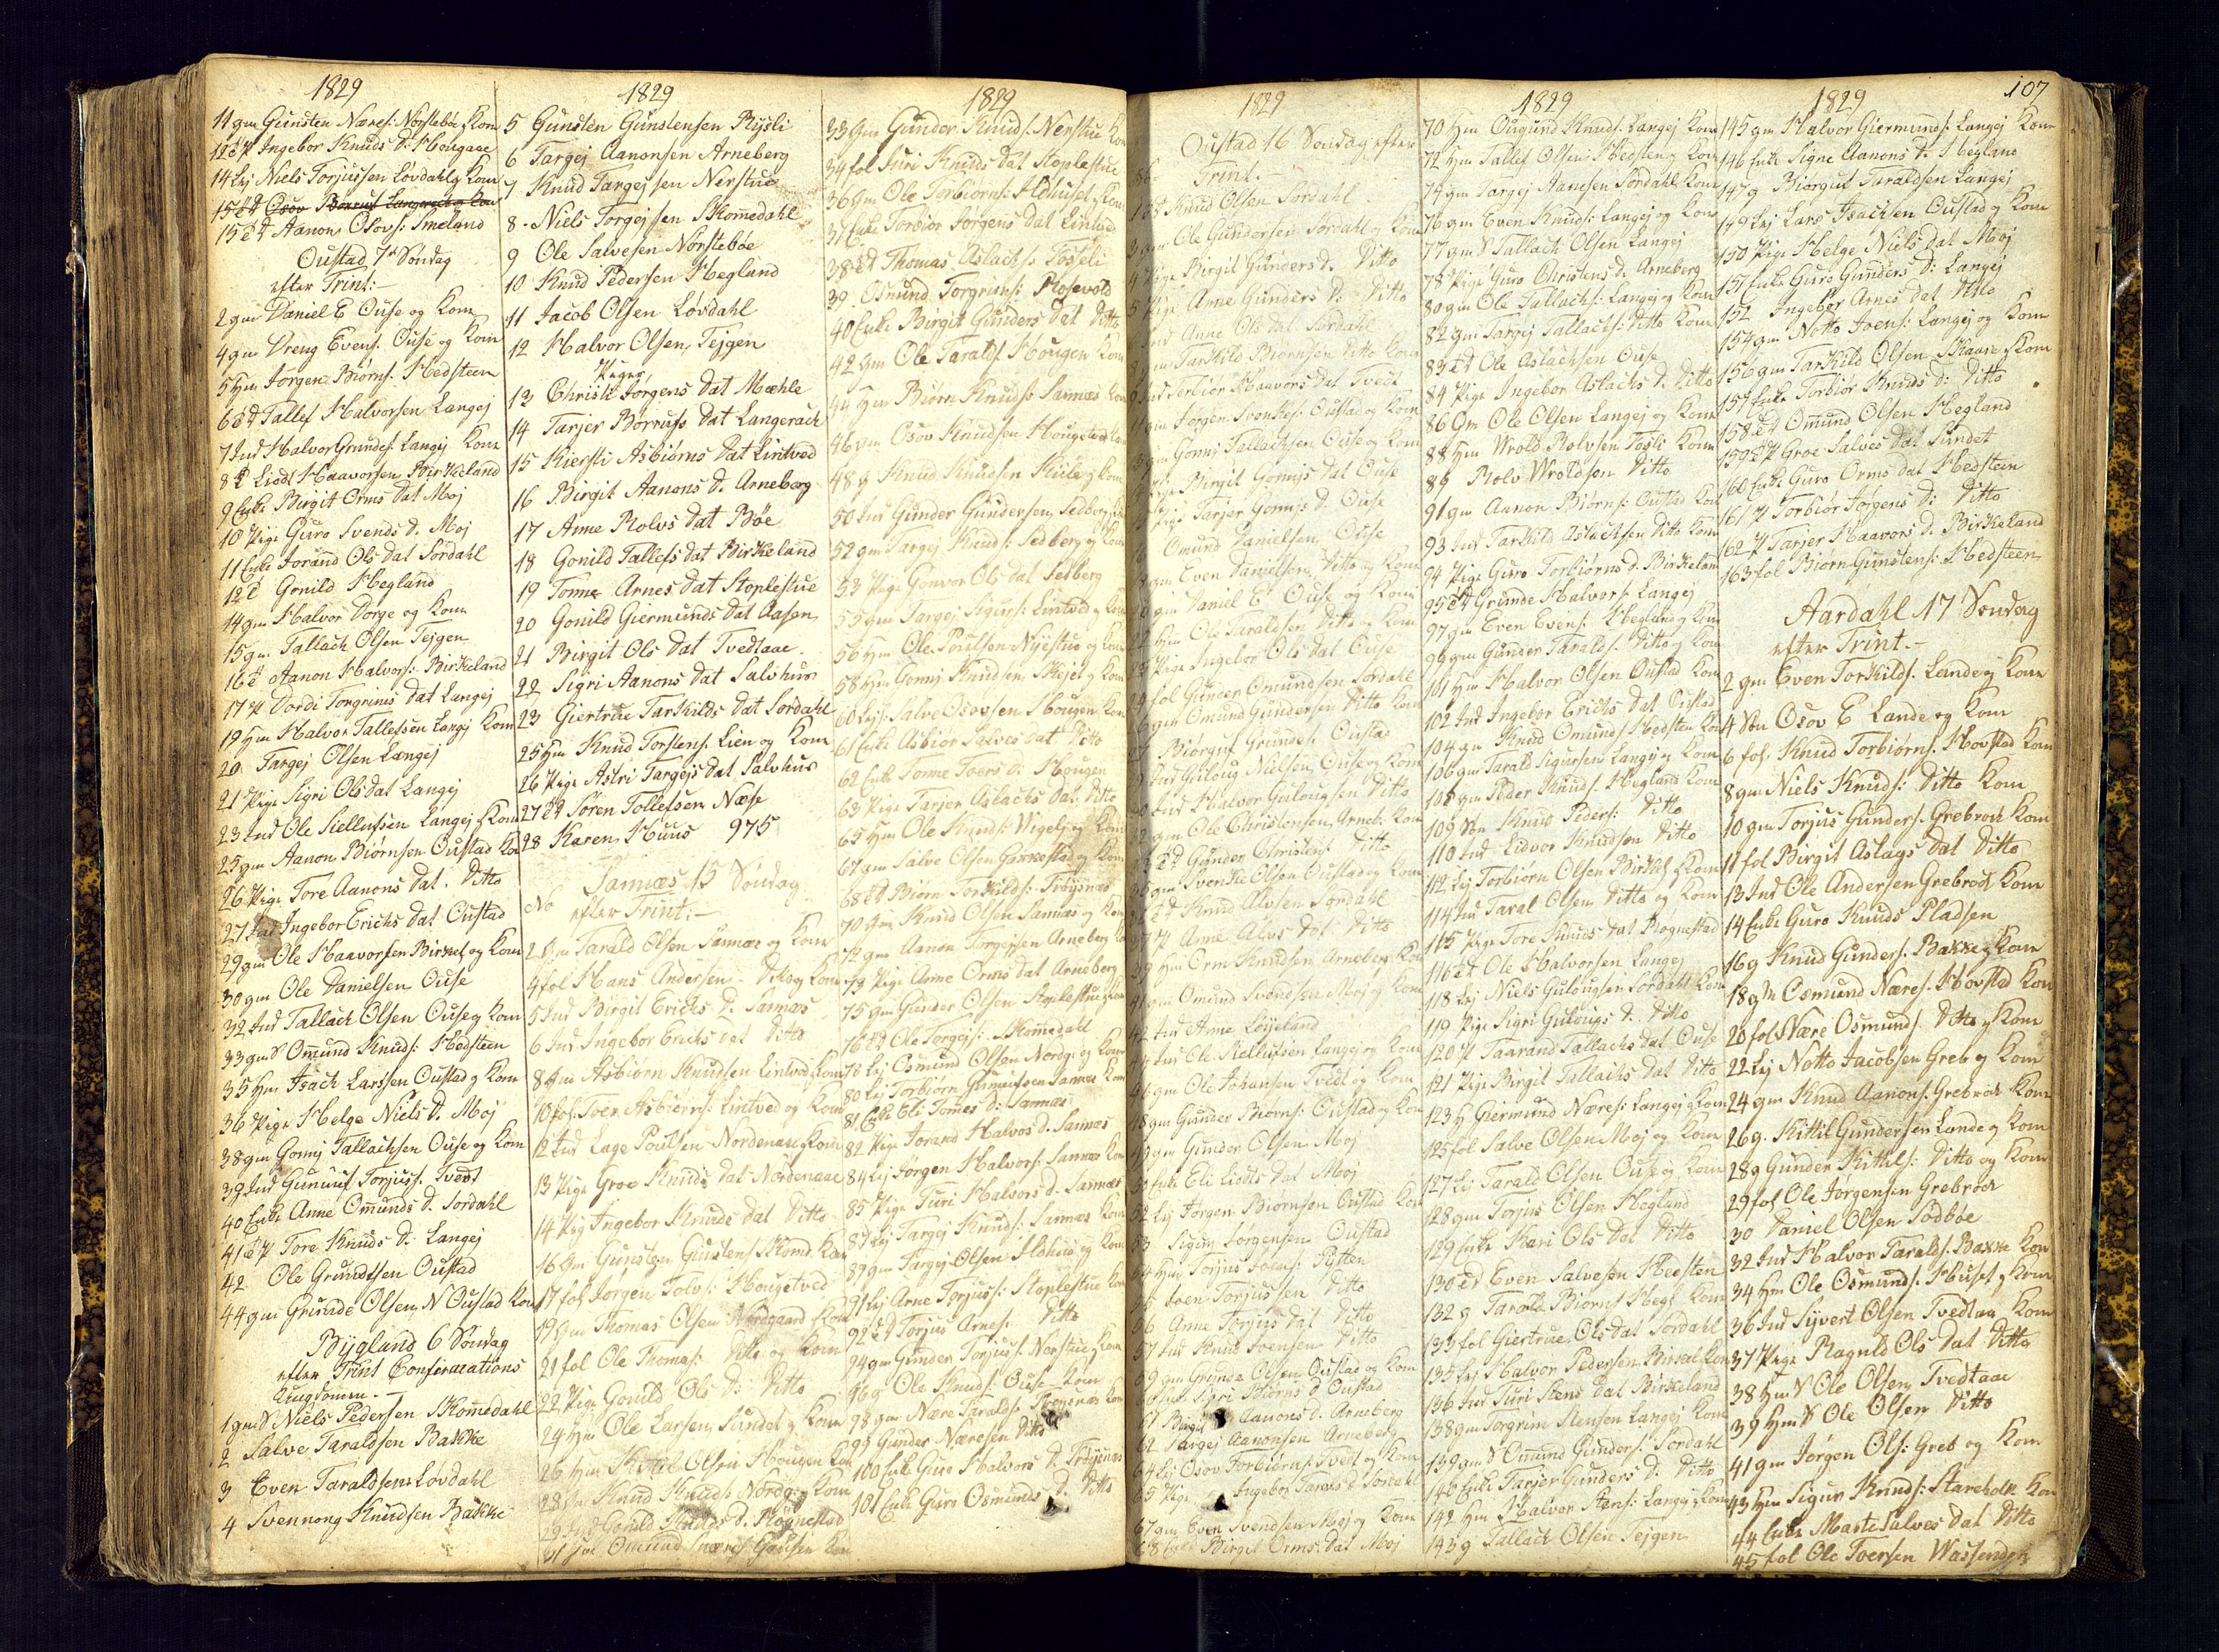 1829
11 gm Gunsten Næres: Norstebøe Kom
12 et P Ingebor Knuds D: Hougaae
14 Lej Niels Torjussen Løvdahl og Kom
15 et Osov
15 et Aanon Osovs: Smeland
Oustad 7de Søndag
efter Trint:-
2 gm Daniel E Ouse og Kom
4 gm Dreng Evens. Ouse og Kom
5 Hm Jørgen Biørns. Hedsteen
6 et Tallef Halvorsen Langej
7 Ind Halvor Grundes: Langej Kom
8 et Liod Haavorsen Birkeland
9 Enke Birgit Orms Dat Moj
10 Pige Guro Svends D. Moj
11 Enke Jorand Ols Dat Sordahl
12 e Gonild Hegland
14 gm Halvor Dorge og Kom
15 gm Tallach Olsen Tejgen
16 e Aanon Halvors: Birkeland
17 P Dordi Torgrims Dat Langej
19 Hm Halvor Tallefsen Langej Kom
20 Targej Olsen Langej
21 Pige Sigri Ols Dat Langej
23 Ind Ole Siellufsen Langej Kom
25 gm Aanon Biørnsen Oustad Ko
26 Pige Tore Aanons Dat. Ditto
27 Ind Ingebor Erichs Dat Oustad
29 gm Ole Haavorsen Birkel og Kom
30 gm Ole Danielsen Ouse
32 Ind Tallach Olsen Ouse og Kom
33 gm S Omund Knuds: Hedsteen
35 Hm Isach Larssen Oustad og Kom
36 Pige Helge Niels D. Moj
38 gm Gonnj Tallachsen Ouse og Kom
39 Ind Gunuuf Torjuss. Tvedt
40 Enke Anne Omunds D. Sordahl
41 et P Tore Knuds D: Langej
42 Ole Grundesen Oustad
44 gm Grunde Olsen N Oustad Kom
Bygland 6 Søndag
efter Trint Confirmations
Ungdomen.-
1 gm S Niels Pedersen Skomedahl
2 Salve Taraldsen Bakke
3 Even Taraldsen Løvdahl
4 Svennong Knudsen Bakke
1829
5 Gunsten Gunstensen Bysli
6 Targej Aanonsen Arneberg
7 Knud Targejsen Nerstue
8 - Niels Torgejsen Skomedahl
9 Ole Salvesen Norstebøe
10 Knud Pedersen Hegland
11 Jacob Olsen Løvdahl
12 Halvor Olsen Tejgen
Piger
13 Christi Jorgens Dat Mæhle
14 Tarjer Børrufs Dat Langerach
15 Kiersti Asbiørns Dat Lintved
16 Birgit Aanons D. Arneberg
17 Anne Rolvs Dat Bøe
18 Gonild Tallefs Dat Birkeland
19 Tonne Arnes Dat Stoplestue
20 Gonild Giermunds Dat Aasen
21 Birgit Ols Dat Tvedtaae
22 Sigri Aanons Dat Salvhus
23 Giertrue Tarkilds Dat Sordahl
25 Hm Knud Torstens. Lien og Kom
26 Pige Astri Targejs Dat Salvhus
27 et Søren Tollefsen Næse
28 Karen Huus 975
Sannæs 15 Søndag
No efter Trint:-
2 gm Tarald Olsen Sannæs og Kom
4 fol Hans Andersen Ditto og Kom
5 Ind Birgit Erichs D. Sannæs
6 Ind Ingebor Erichs Dat Ditto
8 Hm Asbiørn Knudsen Lintved Kom
10 fol Toer Asbiørns: Lintved og Kom
12 Ind Lage Poulsen Nordenaae Kom
13 Pige Groe Knuds Dat Nordenaae
14 Pig Ingebor Knuds Dat Ditto
16 Gm Gunsten Gunstens Skomd. Kom
17 fol Jørgen Tolvs: Hougetved
19 gm Thomas Olsen Nordgaard Kom
21 fol Ole Thomas: Ditto og Kom
22 Pige Gonild Ols D: Ditto
24 Hm Ole Larsen Sundet og Kom
26 Hm Kittil Olsen Hougen Kom
28 Knud Knuds: Nordg: og Kom
29 Ind Gonild Knuds D. Røgnestad
31 Omund
1829
33 Gm Gunder Knuds: Nerstue Kom
34 fol Juri Knuds Dat Stoplestue
36 Gm Ole Torbiørns: Aldhuset Kom
37 Enke Torbiør Jørgens Dat Lintved
38 et Thomas Aslachs: Joseli
39 Osmund Torgrims: Rosevold
40 Enke Birgit Gunders Dat Ditto
42 Gm Ole Taralds: Hougen Kom
44 Hm Biørn Knuds: Sannæs Kom
46 gm Osov Knudsen Hougetved
48 g Knud Knudsen Kiile og Kom
50 Ind Gunder Gundersen Sedberg
52 gm Targej Knuds: Sedberg og Kom
53 Pige Gonvor Ols Dat Sedberg
55 gm Targej Sigurs: Lintved og Kom
56 Hm Ole Poulsen Nyestue og Kom
58 Hm Gonnj Knudsen Skejet og Kom
60 Lej Salve Osovsen Hougen Kom
61 Enke Asbior Salves Dat Ditto
62 Enke Tonne Toers D: Hougen
63 Pige Tarjer Aslachs Dat: Ditto
65 Hm Ole Knuds: Wigely og Kom
67 gm Salve Olsen og Kom
68 et Biørn Torkilds: Frøysnæs
70 Hm Knud Olsen Sannæs og Kom
72 gm Aanon Torgejsen Arneberg Ko
73 Pige Anne Orms Dat Arneberg
75 gm Gunder Olsen Stoplestue Kom
76 et Ole Torgejs: Skomedahl
78 Lej Osmund Olsen Nordg: og Kom
80 Lej Torbiørn Gunuufsen Sannæs Kom
81 Enke Eli Tomes D: Sannæs
82 Pige Jorand Halvos D. Sannæs
84 Lej Jørgen Halvors: Sannæs Kom
85 Pige Turi Halvors D. Sannæs
87 Lej Targej Knuds: Sannæs Kom
89 gm Targej Olsen Aldhuus og Kom
91 Lej Arne Torjuss: Stoplestue Kom
92 et Torjus Arnes: Ditto
94 gm Gunder Torjuss: Nerstue Kom
96 g Ole Knuds: Ouse Kom
98 gm Nære Taralds: Kom
99 Gunder Næresen Ditto
100 Enke Guro Halvors D. Frøysnæs
101 Enke Guro Osmunds D. Ditto
1829
Oustad 16 Søndag efter
Trint.
1 et Knud Olsen Sordahl
3 gm Ole Gundersen Sordahl og Kom
4 Pige Birgit Gunders D. Ditto
5 Pige Anne Gunders D: Ditto
Ind Anne Ols Dat Sordahl
gm Tarkild Biørnsen Ditto Kom
Ind Torbiør Haavors Dat Tvedt
gm Jørgen Svenkes: Oustad og Kom
gm Gonnj Tallachsen Ouse og Kom
Pige Birgit Gonnjs Dat Ouse
Pige Tarjer Gonnjs D. Ouse
Omund Danielsen Ouse
gm Even Danielsen Ditto og Kom
gm Daniel E Ouse og Kom
Hm Ole Taraldsen Ditto og Kom
Pige Ingebor Ols Dat Ouse
fol Gunder Omundsen Sordahl
gm Omund Gundersen Ditto Kom
Biørguf Grundes: Oustad
Ind Guloug Nielsen Ouse og Kom
Ind Halvor Gulougsen Ditto
gm Ole Christensen Arneb: Kom
et Gunder Christens Ditto
gm Svenke Olsen Oustad og Kom
et Knud Alvsen Sordahl
37 P Anne Alvs Dat Ditto
39 Hm Orm Knudsen Arneberg Kom
41 gm Omund Svendsen Moj og Kom
42 Ind Anne Loijeland
44 Ind Ole Siellufsen Langej og Kom
46 gm Ole Johansen Tvedt og Kom
48 gm Gunder Biørns: Oustad og Kom
49 gm Gunder Olsen Moj
50 Enke Eli Liods Dat Moj
52 Lej Jørgen Biørnsen Oustad Kom
53 Sigur Jørgensen Oustad
54 Hm Torjus Joens: Pytten
55 Joen Torjussen Ditto
56 Anne Torjus Dat Ditto
57 Ind Knud Svensen Ditto
59 gm Grunde Olsen Oustad og Kom
60 Sigri Biørns D Oustad
61 Birgit Aanons D. Arneberg
62 Targej Aanonsen Arneberg
64 Lej Osov Torbiørns: Tvedt og Kom
65 Pige Ingebor Taralds D Sordahl
67 gm Even Svendsen Moj og Kom
68 Enke Birgit Orms Dat Moj
1829
70 Hm Ougund Knuds: Langej Kom
72 Hm Tallef Olsen Hedsteen Kom
74 gm Targej Aanesen Sordahl Kom
76 gm Even Knuds: Langej og Kom
77 gm S Tallach Olsen Langej
78 Pige Guro Christens D. Arneberg
80 gm Ole Tallachs: Langej og Kom
82 gm Targej Tallachs: Ditto Kom
83 et Ole Aslachsen Ouse
84 Pige Ingebor Aslachs D. Ditto
86 Gm Ole Olsen Langej og Kom
88 Hm Wrold Rolvsen Josli Kom
89 Rolv Wroldsen Ditto
91 gm Aanon Biørns: Oustad Kom
93 Ind Tarkild Aslachsen Ditto Kom
94 Pige Guro Torbiørns D. Birkeland
95 et Grunde Halvors: Langej
97 gm Even Evens: Hegland og Kom
99 gm Gunder Taralds. Ditto og Kom
101 Hm Halvor Olsen Oustad Kom
102 Ind Ingebor Erichs Dat Oustad
104 gm Knud Omunds Hedsten Kom
106 gm Tarald Sigursen Langej og Kom
108 gm Peder Knuds. Hegland Kom
109 Søn Knud Peders: Ditto
110 Ind Eidvor Knudsen Ditto
112 Lej Torbiørn Olsen Birkel Kom
114 Ind Taral Olsen Ditto og Kom
115 Pige Tore Knuds Dat Røgnestad
116 et Ole Halvorsen Langej
118 Lej Niels Gulougsen Sordahl Kom
119 Pige Sigri Gulougs D. Ditto
120 P Taarand Tallachs Dat Ouse
121 Pige Birgit Tallachs Dat Ditto
123 H Giermund Næres: Langej og Kom
125 fol Salve Olsen Moj og Kom
127 Lej Tarald Olsen Ouse og Kom
128 gm Torjus Olsen Hegland
129 Enke Kari Ols Dat Ditto
130 et Even Salvesen Heesten
132 g Tarald Biørns Hegl Kom
133 fol Giertrue Ols Dat Sordahl
135 Lej Halvor Pedersen Birkel Kom
136 Ind Turi Stens Dat Birkeland
138 gm Torgrim Stensen Langej Kom
139 gm S Omund Gunders: Sordahl
140 Enke Tarjer Gunders D. Ditto
142 Hm Halvor Stens: Langej og Kom
143 g Tallach Olsen Tejgen
1829 107
145 gm Halvor Giermunds: Langej Kom
146 Enke Signe Aanons D. Hegland
147 g Biørguf Taraldsen Langej
149 Lej Lars Isachsen Oustad og Kom
150 Pige Helge Niels Dat Moj
151 Enke Guro Gunders D: Langej
152 Ingebor Arnes Dat Ditto
154 gm Notto Joens: Langej og Kom
156 gm Tarkild Olsen Skaare Kom
157 Enke Torbiør Knuds D: Ditto
158 et Omund Olsen Hegland
159 et P Groe Salves Dat Sundet
160 Enke Guro Orms Dat Hedsteen
161 P Torbiør Jørgens D: Ditto
162 P Tarjer Haavors D. Birkeland
163 fol Biørn Gunstens: Hedsteen
Aardahl 17 Søndag
efter Trint.-
2 gm Even Torkilds. Lande og Kom
4 Søn Osov E Lande og Kom
6 fol. Knud Torbiørns. Hovstad Kom
8 gm Niels Knuds: Ditto Kom
10 gm Torjus Gunders. Grebrock Kom
11 fol Birgit Aslags Dat Ditto
13 Ind Ole Andersen Grebrock Kom
14 Enke Guro Knuds Pladsen
16 g Knud Gunders. Bakke og Kom
18 gm Osmund Næres. Hovstad Kom
20 fol Nære Osmunds. Ditto og Kom
22 Lej Notto Jacobsen Greb og Kom
24 gm Knud Aanons. Grebrock Kom
26 g. Kittil Gundersen Lande og Kom
28 g Gunder Kittils: Ditto og Kom
29 fol Ole Jørgensen Grebrock
30 Daniel Olsen Sodbøe
32 Ind Halvor Taralds. Bakke Kom
34 Hm Ole Osmunds. Huset og Kom
36 Ind Syvert Olsen Tvedtaa Kom
37 Pige Raguld Ols Dat Ditto
38 Hm S Ole Olsen Tvedtaae
39 Hm S Ole Olsen Ditto
41 gm Jørgen Ols: Greb og Kom
43 Hm Sigur Knuds: Stareholt Kom
44 Enke Marte Salves Dat Ditto
45 fol Ole Toersen Wassenden